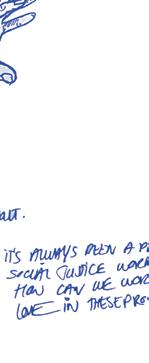 OUT.
IT'S ALWAYS BEEN A P
SOCIAL JUSTICE WOR
HOW CAN WE WOR
LOVE IN THESE PRO